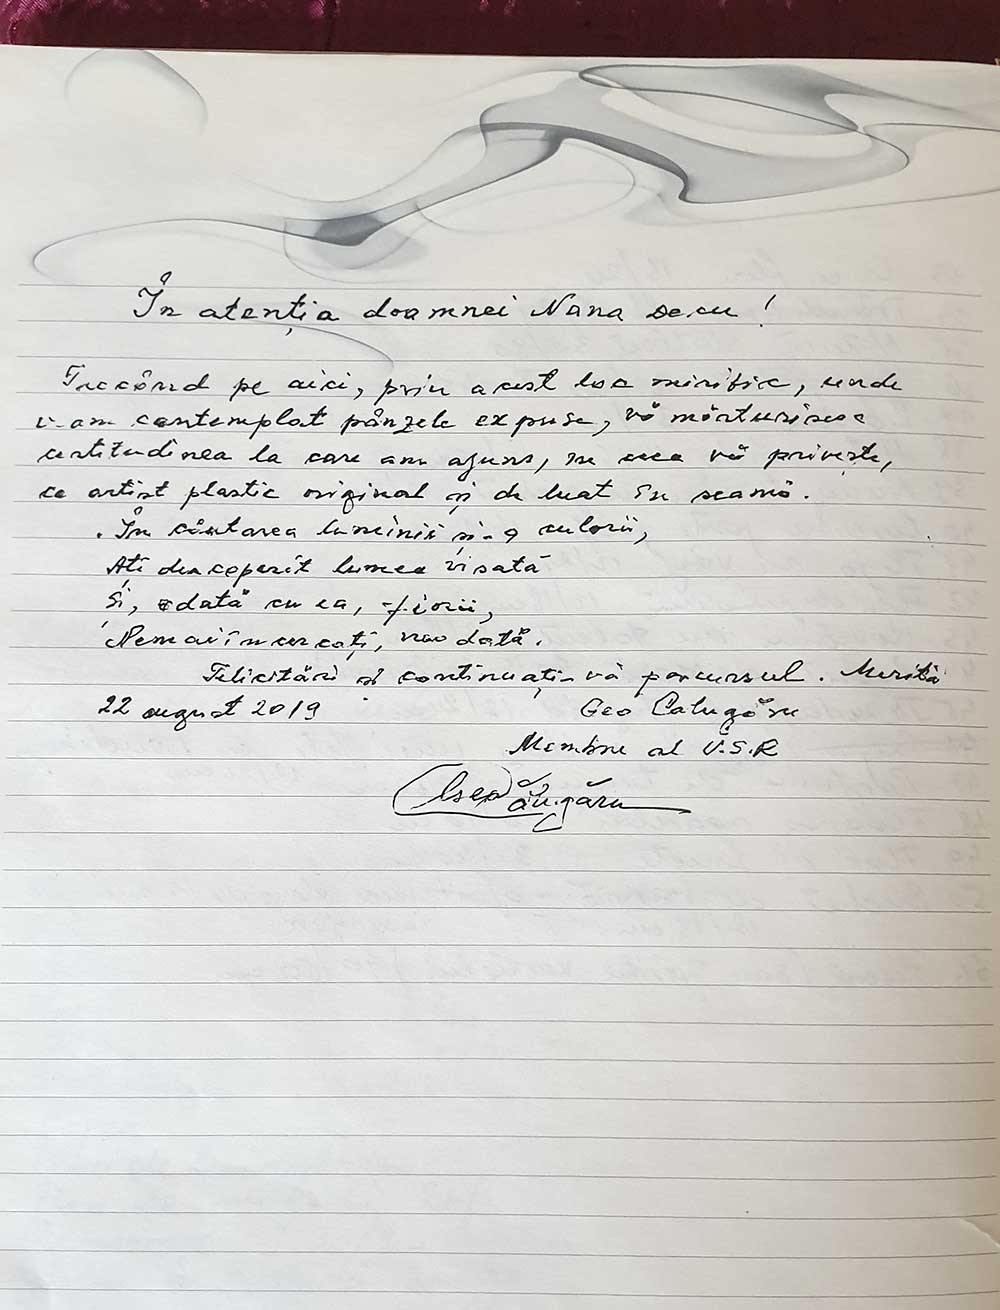 În atenția doamnei Nana Decu !
Trecând pe aici, prin acest loc mirific, unde
v-am contemplat pânzele expuse, vă mărturisesc
certitudinea la care am ajuns, în ceea vă privește,
ca artist plastic original și de luat în seamă.
În căutarea luminii și-a culorii,
Ati descoperit lumea visată
Și, odată cu ea, fiorii,
Nemaiîncercați, vreo dată.
Felicitări și continuați-vă parcursul. Merită
22 august 2019 Geo Călugăru
Membru al U.S.R
Geo Călugăru